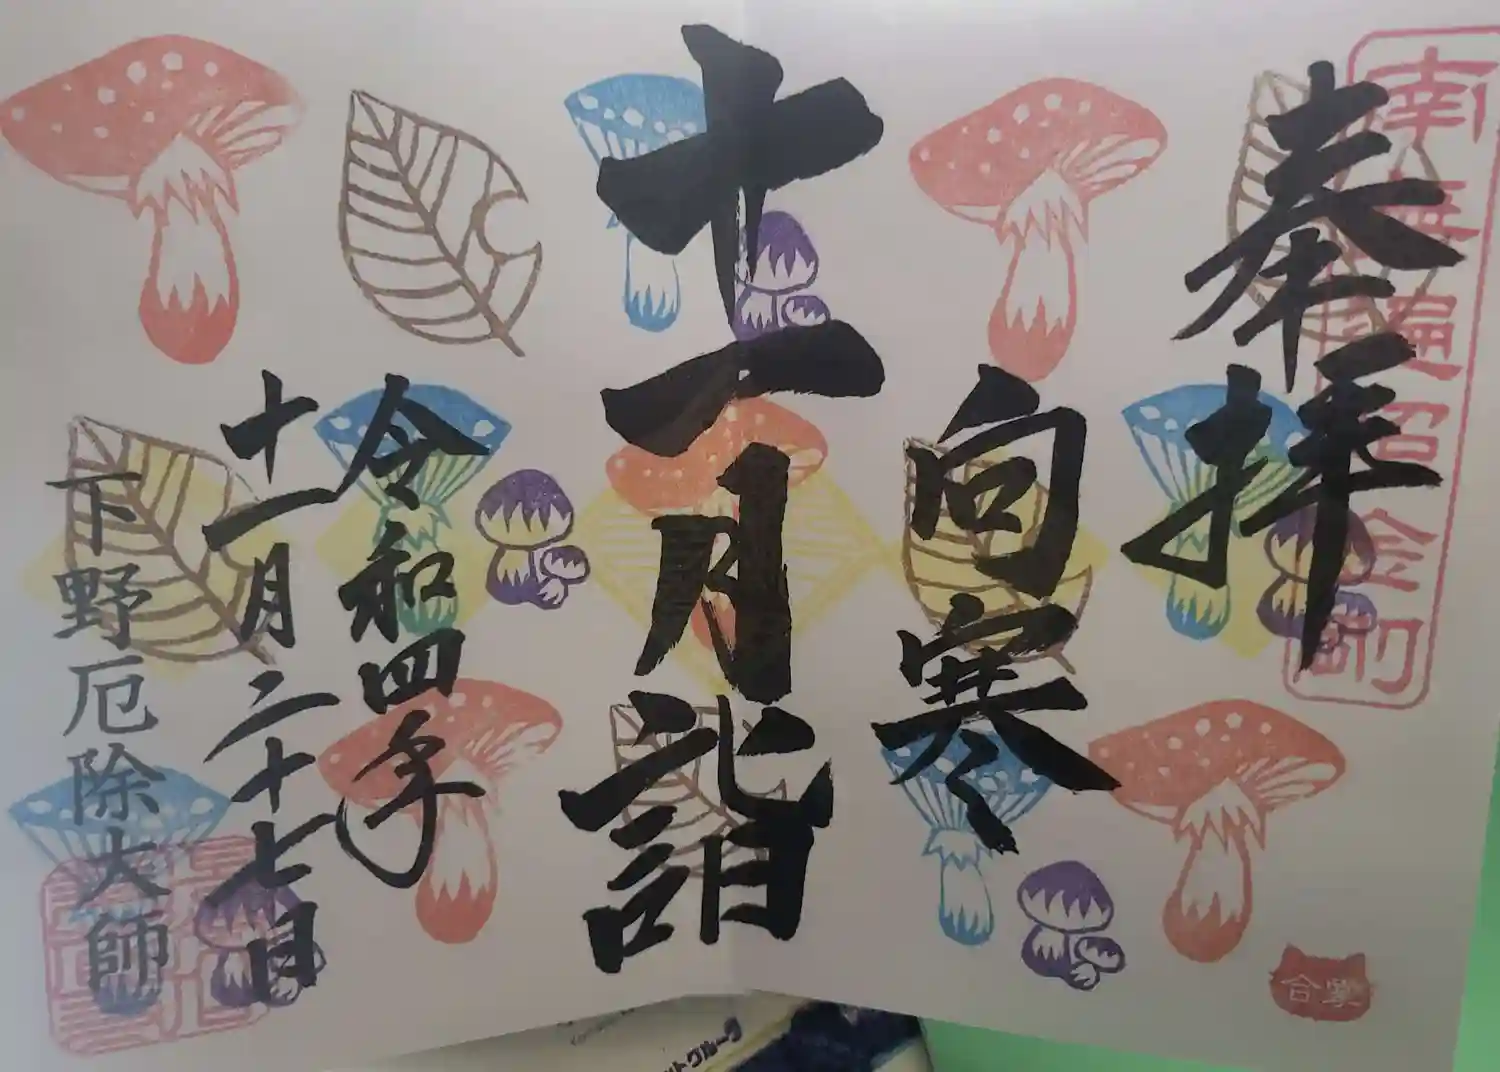 南無遍照金剛
奉拝
向寒
十一月詣
令和四年
十一月二十七日
下野厄除大師
合掌
ットグループ